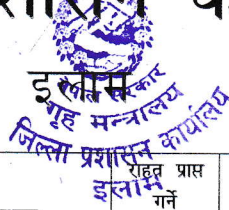 इलाम
नेपाल सरकार
गृह मन्त्रालय
जिल्ला प्रशासन कार्यालय
इलाम
राहत प्राप्त
गर्ने